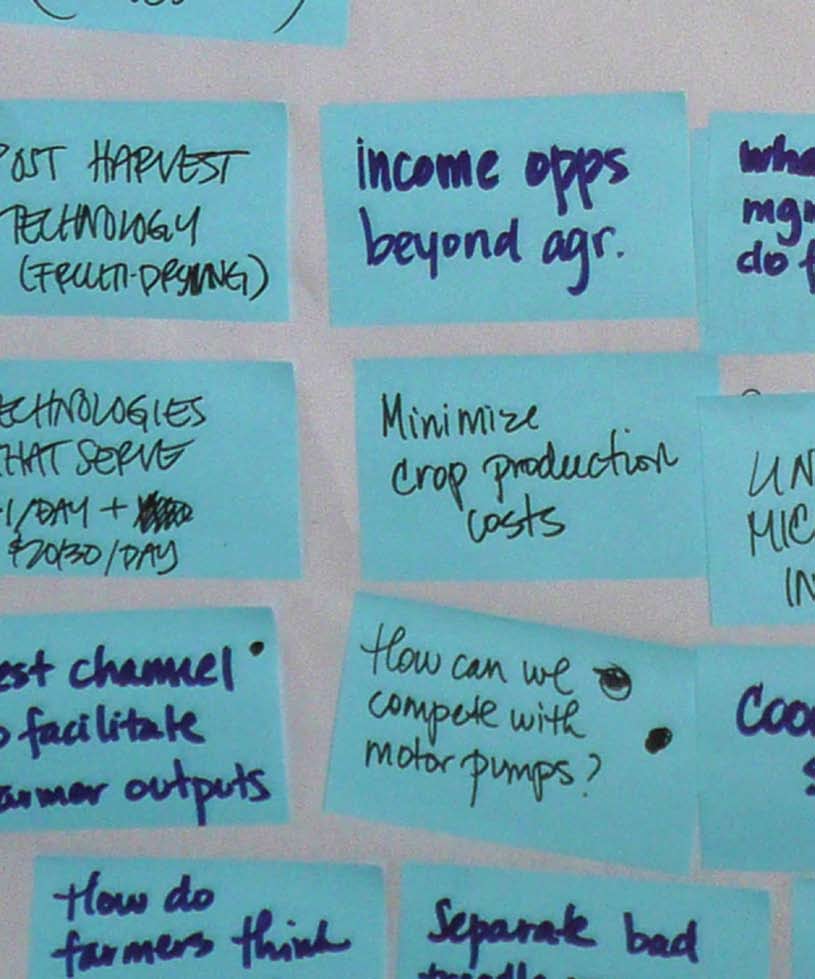 POST HARVEST
TECHNOLOGY
(FRUIT-DRYING)
income opps
beyond agr.
mgm
do f
TECHNOLOGIES
THAT SERVE
1/DAY +
$20/30/DAY
Minimize
crop production
costs
UN
MIC
IN
est channel
o facilitate
armer outputs
How can we
compete with
motor pumps?
Coo
S
How do
farmers think
Separate bad